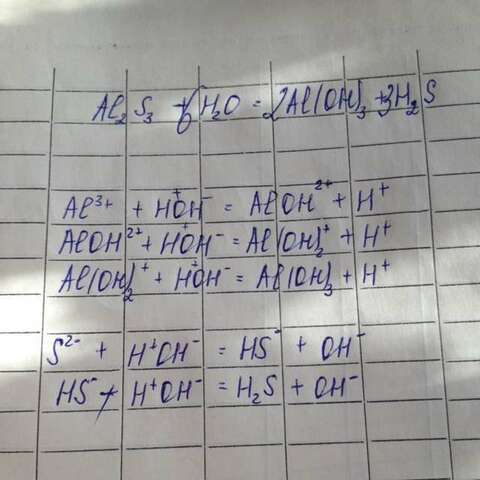 Al₂S₃ + 6H₂O = 2Al(OH)₃ + 3H₂S
Al³⁺ + H⁺OH⁻ = AlOH²⁺ + H⁺
AlOH²⁺ + H⁺OH⁻ = Al(OH)₂⁺ + H⁺
Al(OH)₂⁺ + H⁺OH⁻ = Al(OH)₃ + H⁺
S²⁻ + H⁺OH⁻ = HS⁻ + OH⁻
HS⁻ + H⁺OH⁻ = H₂S + OH⁻